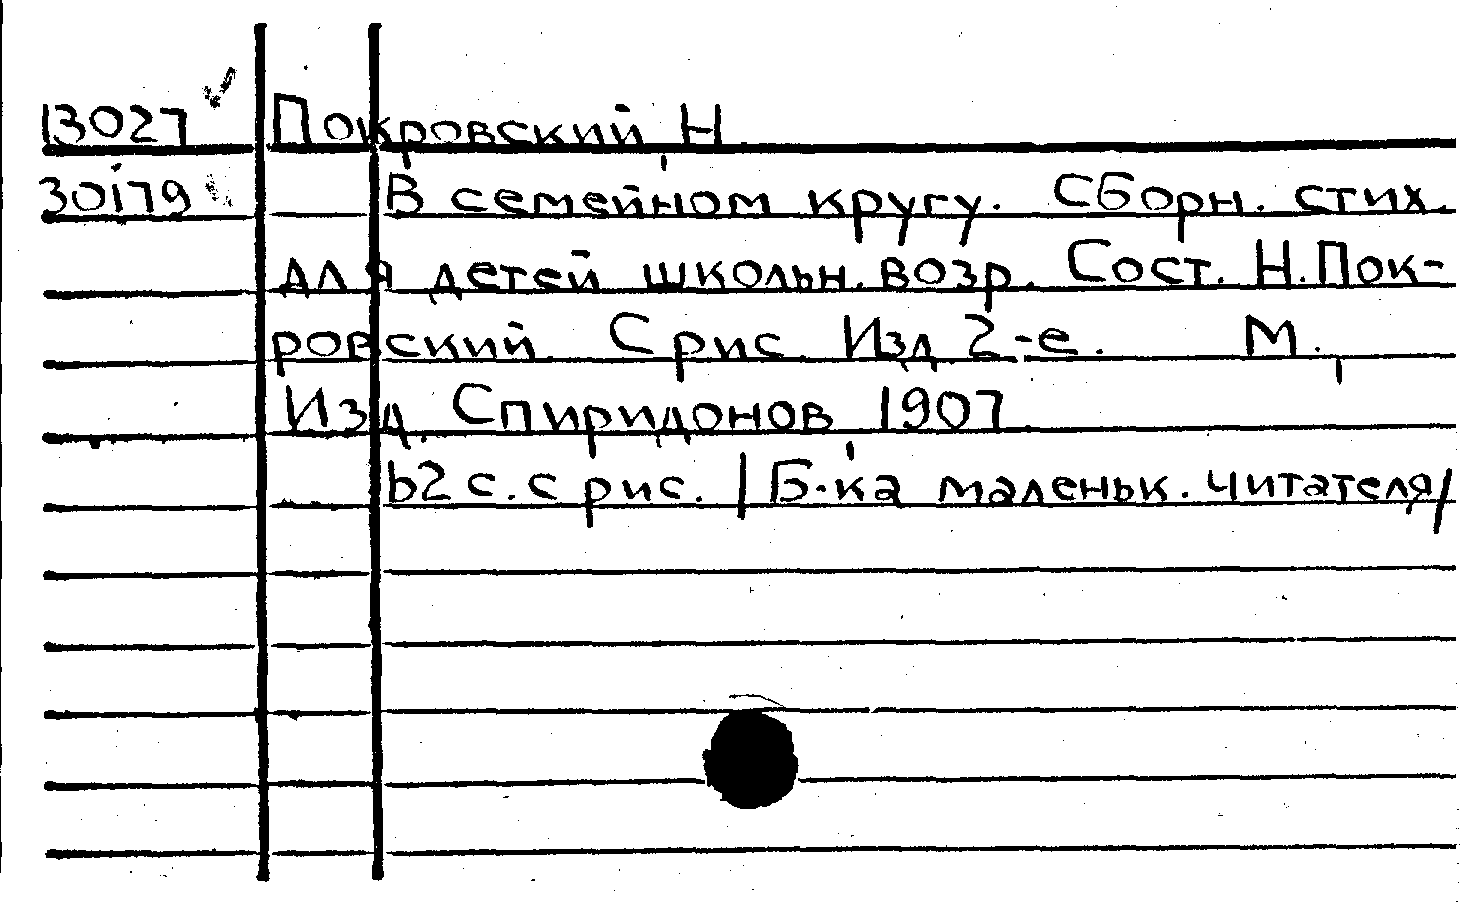 13027 Покровский, Н.
30179 В семейном кругу. Сборн. стих.
для детей школьн. возр. Сост. Н. Пок-
ровский. С рис. Изд. 2-е. М.,
Изд. Спиридонов, 1907.
62 с. с рис. /Б-ка маленьк. читателя/